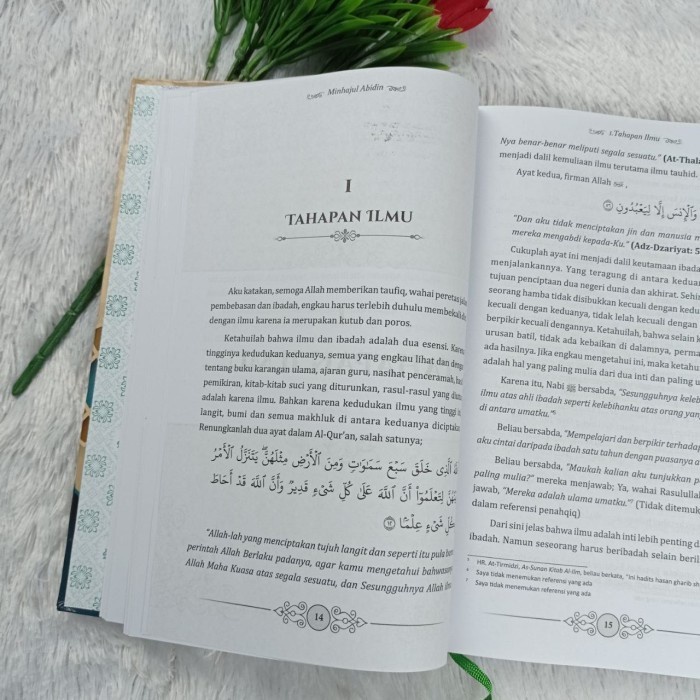 Minhajul Abidin
I
TAHAPAN ILMU
Aku katakan, semoga Allah memberikan taufiq, wahai peretas
pembebasan dan ibadah, engkau harus terlebih duhulu membekali
dengan ilmu karena ia merupakan kutub dan poros.
Ketahuilah bahwa ilmu dan ibadah adalah dua esensi. Karena
tingginya kedudukan keduanya, semua yang engkau lihat dan dengar
tentang buku karangan ulama, ajaran guru, nasihat penceramah,
pemikiran, kitab-kitab suci yang diturunkan, rasul-rasul yang
adalah karena ilmu. Bahkan karena kedudukan ilmu yang tinggi
langit, bumi dan semua makhluk di antara keduanya diciptakan
Renungkanlah dua ayat dalam Al-Qur'an, salah satunya;
ٱلَّذِى خَلَقَ سَبْعَ سَمَٰوَٰتٍ وَمِنَ ٱلْأَرْضِ مِثْلَهُنَّ يَتَنَزَّلُ ٱلْأَمْرُ
لِتَعْلَمُوٓا۟ أَنَّ ٱللَّهَ عَلَىٰ كُلِّ شَىْءٍ قَدِيرٌ وَأَنَّ ٱللَّهَ قَدْ أَحَاطَ
شَىْءٍ عِلْمًا ١٢
"Allah-lah yang menciptakan tujuh langit dan seperti itu pula bumi
perintah Allah Berlaku padanya, agar kamu mengetahui bahwasanya
Allah Maha Kuasa atas segala sesuatu, dan Sesungguhnya Allah ilmu
14
1.Tahapan Ilmu
Nya benar-benar meliputi segala sesuatu." (At-Thala
menjadi dalil kemuliaan ilmu terutama ilmu tauhid.
Ayat kedua, firman Allah ﷻ,
وَٱلْإِنسَ إِلَّا لِيَعْبُدُونِ ٥٦
"Dan aku tidak menciptakan jin dan manusia
mereka mengabdi kepada-Ku." (Adz-Dzariyat: 5
Cukuplah ayat ini menjadi dalil keutamaan ibada
menjalankannya. Yang teragung di antara keduan
tujuan penciptaan dua negeri dunia dan akhirat. Sehi
seorang hamba tidak disibukkan kecuali dengan kedu
kecuali dengan keduanya, tidak lelah kecuali dengan
berpikir kecuali dengannya. Ketahuilah, bahwa selain k
urusan batil, tidak ada kebaikan di dalamnya, permc
ada hasilnya. Jika engkau mengetahui ini, maka ketahu
adalah hal yang paling mulia dari dua inti dan paling u
Karena itu, Nabi ﷺ bersabda, "Sesungguhnya keleb
ilmu atas ahli ibadah seperti kelebihanku atas orang yan
di antara umatku."⁵
Beliau bersabda, "Mempelajari dan berpikir terhadap
aku cintai daripada ibadah satu tahun dengan puasanya
Beliau bersabda, "Maukah kalian aku tunjukkan p
paling mulia?" mereka menjawab; Ya, wahai Rasulullah
jawab, "Mereka adalah ulama umatku."⁷ (Tidak ditemuk
dalam referensi penahqiq)
Dari sini jelas bahwa ilmu adalah inti lebih penting d
ibadah. Namun seseorang harus beribadah selain beril
HR. At-Tirmidzi, As-Sunan Kitab Al-Ilm, beliau berkata, "Ini hadits hasan gharib sh
Saya tidak menemukan referensi yang ada
Saya tidak menemukan referensi yang ada
15